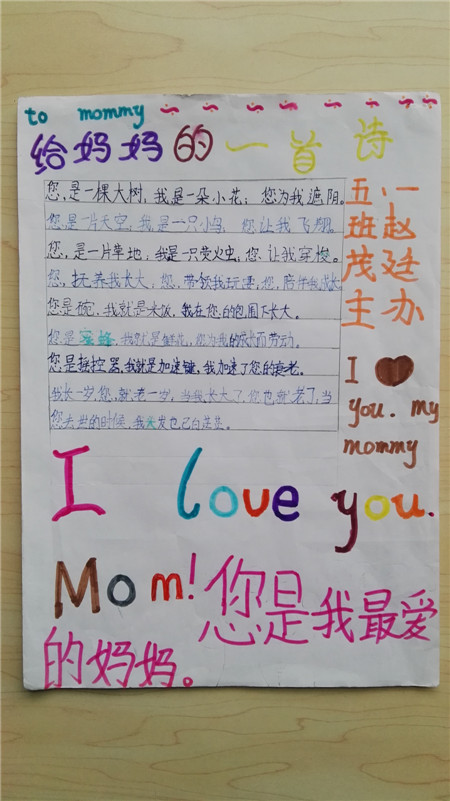 to mommy
给妈妈的一首诗
您,是一棵大树,我是一朵小花;您为我遮阴。
您是一片天空,我是一只小鸟,您让我飞翔。
您,是一片草地,我是一只荧火虫,您让我穿梭。
您,抚养我长大,您,带领我玩耍,您,陪伴我成长
您是碗,我就是米饭,我在您的包围下长大。
您是蜜蜂,我就是鲜花,您为我的成长而劳动。
您是摇控器,我就是加速键,我加速了您的衰老。
我长一岁,您就老一岁,当我长大了,您也就老了,当
您去世的时候,我头发也已白茫茫。
五、一
班赵
茂廷
主办
I ❤
you. my
mommy
I love you.
Mom!您是我最爱
的妈妈。